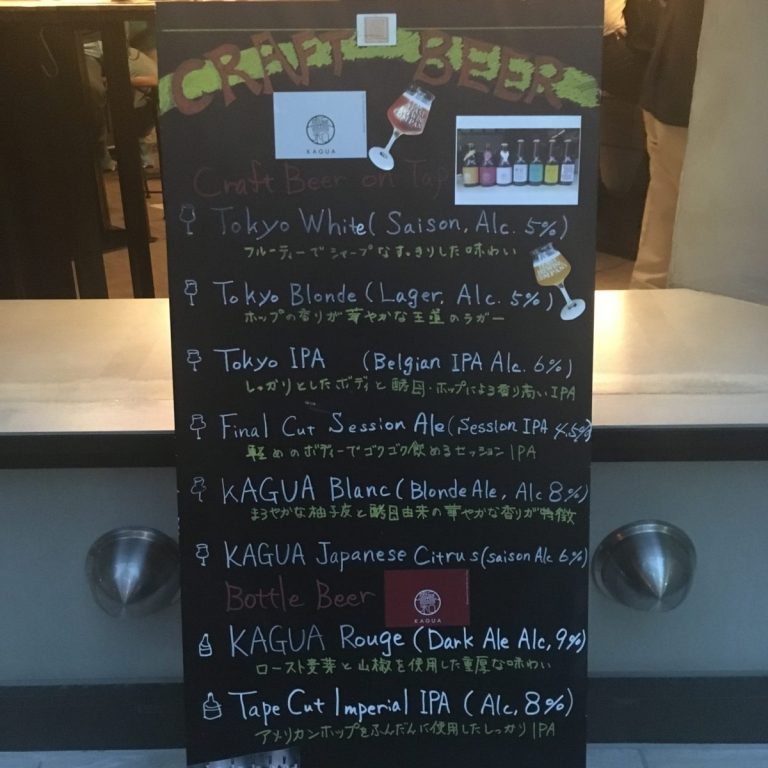 CRAFT BEER
KAGUA
Craft Beer on Tap
Tokyo White (Saison, Alc. 5%)
フルーティーでシャープなすっきりした味わい
Tokyo Blonde (Lager, Alc. 5%)
ホップの香りが華やかな王道のラガー
Tokyo IPA (Belgian IPA Alc. 6%)
しっかりとしたボディと酵母・ホップによる香り高いIPA
Final Cut Session Ale (Session IPA 4.5%
軽めのボディーでゴクゴク飲めるセッションIPA
KAGUA Blanc (Blonde Ale, Alc 8%)
まろやかな柚子皮と酵母由来の華やかな香りが特徴
KAGUA Japanese Citrus (saison Alc 6%)
Bottle Beer
KAGUA
KAGUA Rouge (Dark Ale Alc, 9%)
ロースト麦芽と山椒を使用した重厚な味わい
Tape Cut Imperial IPA (Alc, 8%)
アメリカンホップをふんだんに使用したしっかりIPA